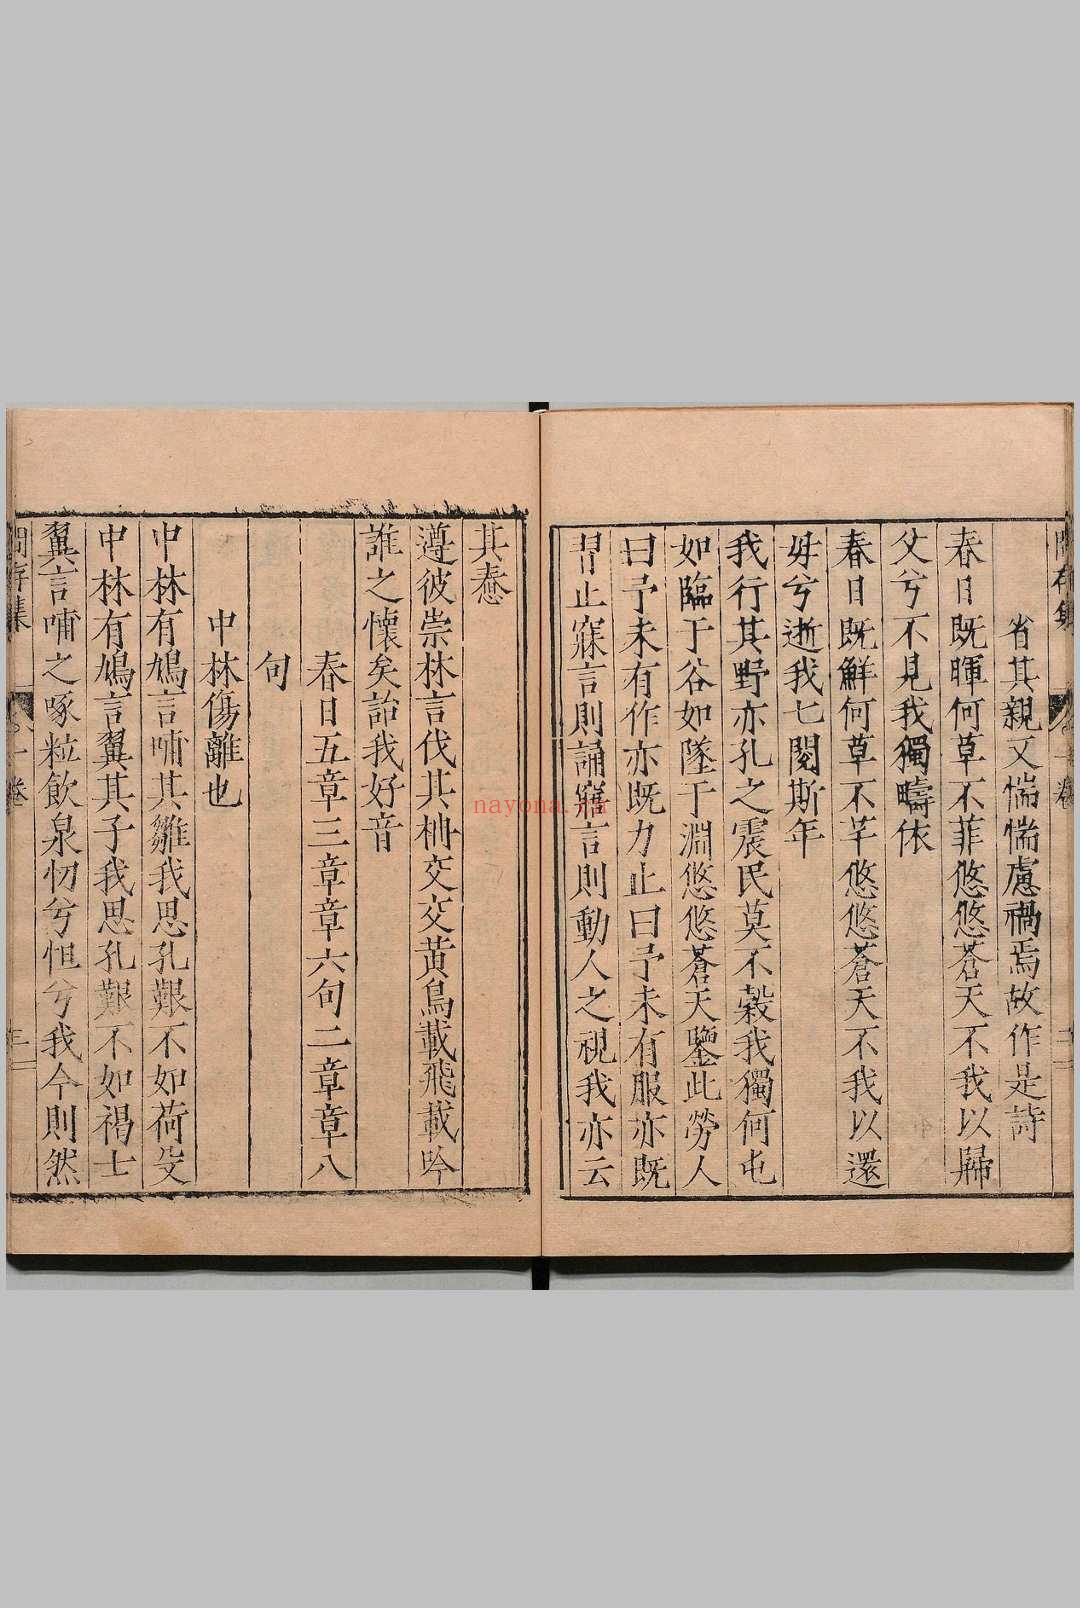 省其親又惴惴慮禍焉故作是詩
春日既暉何草不菲悠悠蒼天不我以歸
父兮不見我獨疇依
春日既鮮何草不芊悠悠蒼天不我以還
母兮逝我七閱斯年
我行其野亦孔之震民莫不穀我獨何屯
如臨于谷如墜于淵悠悠蒼天鑒此勞人
曰予未有作亦既力止曰予未有服亦既
習止寐言則誦寤言則動人之視我亦云
其惷
遵彼崇林言伐其枏交交黃鳥載飛載吟
誰之懷矣詒我好音
春日五章三章章六句二章章八
句
中林傷離也
中林有鳩言哺其雛我思孔艱不如荷殳
中林有鳩言翼其子我思孔艱不如褐士
翼言哺之啄粒飲泉忉兮怛兮我今則然
存集
一卷
nayona.cn